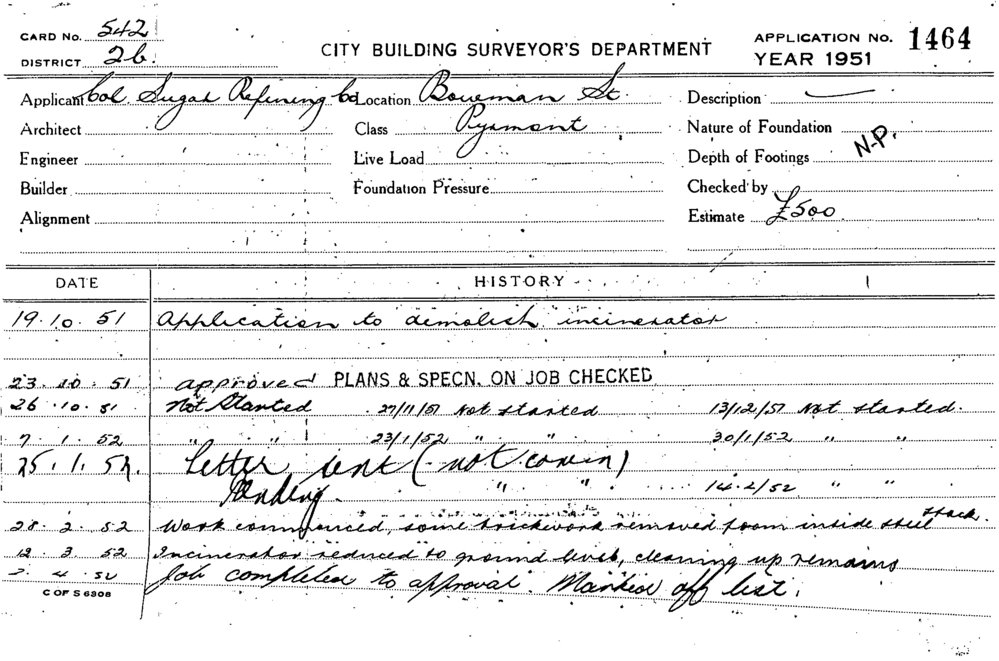 CARD No. 542
DISTRICT 2b.
CITY BUILDING SURVEYOR'S DEPARTMENT
APPLICATION No. 1464
YEAR 1951
Applicant Col. Sugar Refining Co Location Bowman St. Description
Architect Class Pyrmont Nature of Foundation
Engineer Live Load Depth of Footings N.P.
Builder Foundation Pressure Checked by
Alignment Estimate £500
DATE HISTORY
19.10.51 Application to demolish incinerator
23.10.51 approved PLANS & SPECN. ON JOB CHECKED
26.10.51 Not Started 27/11/51 Not started 13/12/51 Not started.
7.1.52 " " 23/1/52 " " 30/1/52 " "
25.1.52. Letter sent (not
Pending. " " 14.2/52 " "
28.2.52 Work commenced, some brickwork removed from inside steel stack.
12.3.52 Incinerator reduced to ground level, cleaning up remains
4.52 Job completed to approval. Marked off list.
C OF S 6308